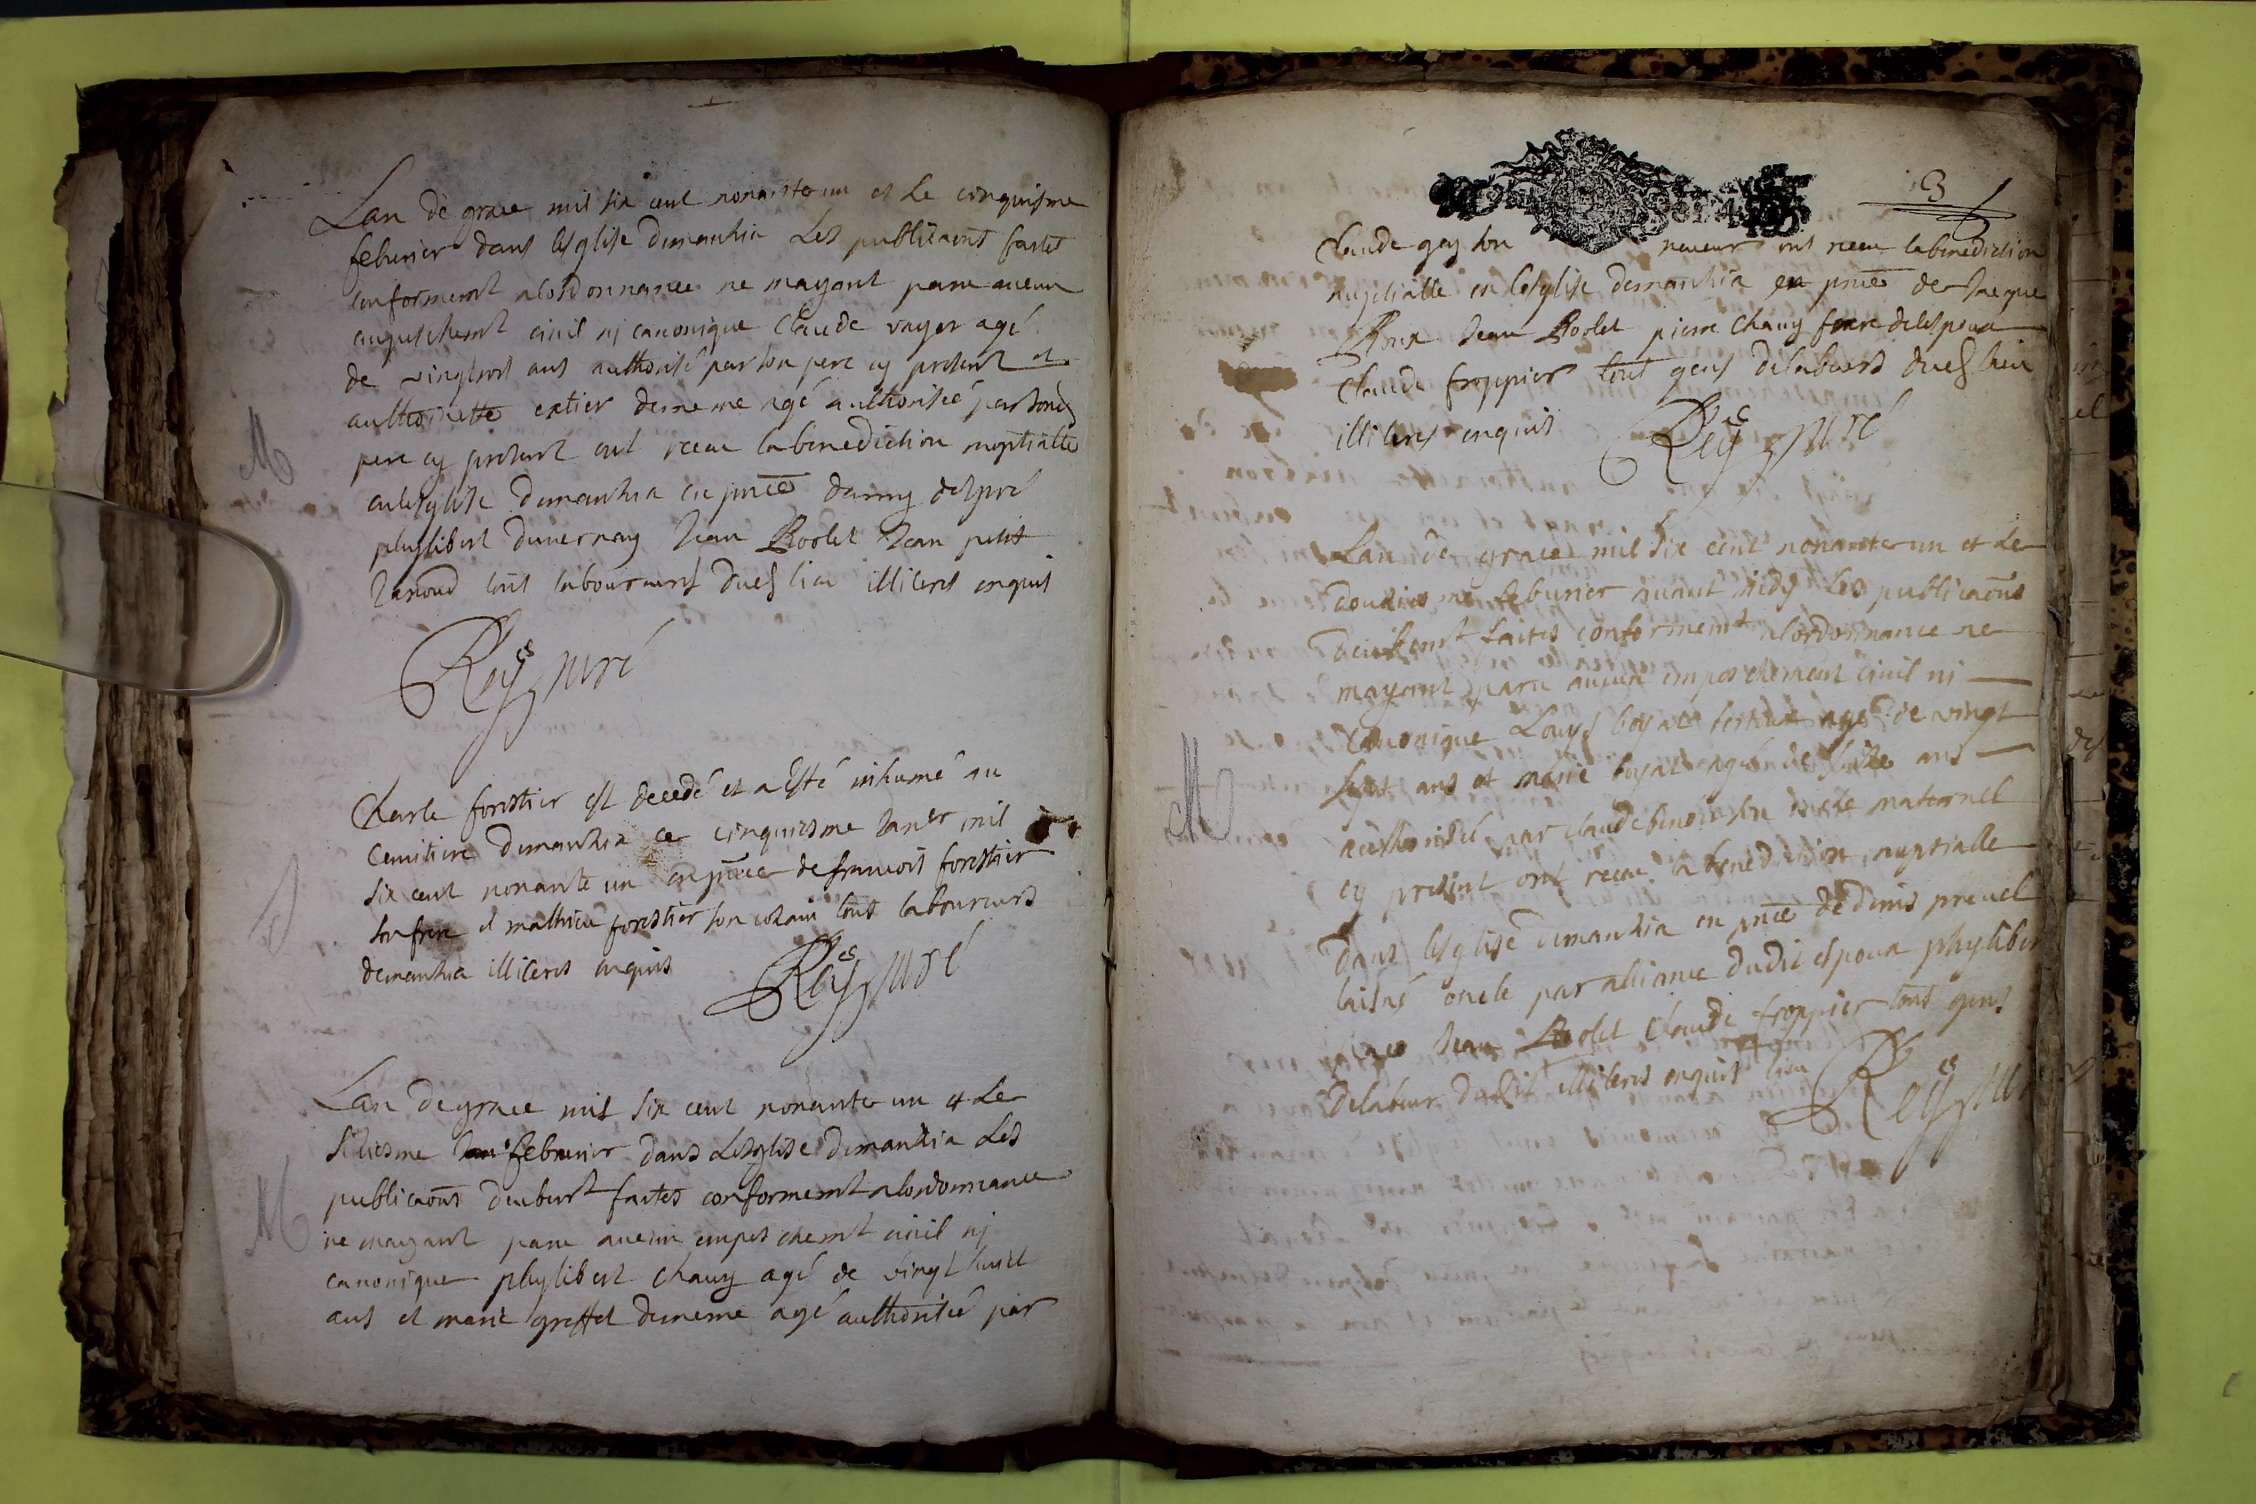 Lan de grace mil six cent nonante un et Le cinquisme
feburier dans lesglise demanhia Les publicaons faites
conformemt alordonnance ne mayant paru aucun
civil nj canonique Claude vuger agé
de vingtrois ans authorisé par son pere cy present et
anthoinette dememe agé authorisée par sond
pere cy present ont receu la benediction nuptialle
en lesglise demanhia en pnce
phylibert duvernay Jean Rolet Jean petit
Janoud tous laboureurs dud lieu illiteres enquis
Rey curé
M
Charle forestier est decedé et a esté inhumé au
cemitiere demanhia ce cinquiesme Janer mil
six cent nonante un en pnce de francois forestier
son frere et mathieu forestier son cosain tous laboureurs
demanhia illiteres enquis
Rey curé
Lan de grace mil six cent nonante un et Le
feburier dans Lesglise demanhia Les
publicaons deubemt faites conformemt alordonnance
ne mayant paru aucun empeschemt civil nj
canonique phylibert chauy agé de vingt huict
ans et marie greffet dememe agé authorisée par
M
3
Claude ont receu la benediction
nuptialle en lesglise demanhia en pnce de Jacque
Roux Jean Rolet pierre chauy frere delespoux
Claude froppier tous gens delabeurs dud lieu
illiteres enquis
Rey curé
Lan de grace mil six cent nonante un et Le
feburier avant midy Les publicaons
deubemt faites conformemt alordonnance ne
mayant paru aucun empeschement civil ni
canonique Louys agé de vingt
sept ans et marie agée de ans
authorisée par claude benoit son oncle maternel
cy present ont receu la benediction nuptialle
dans lesglise demanhia en pnce de denis preuel
laisné oncle par aliance dudit espoux phylibert
Jean Rolet Claude froppier tous gens
delabeur dudit illiteres enquis lieu
Rey
M